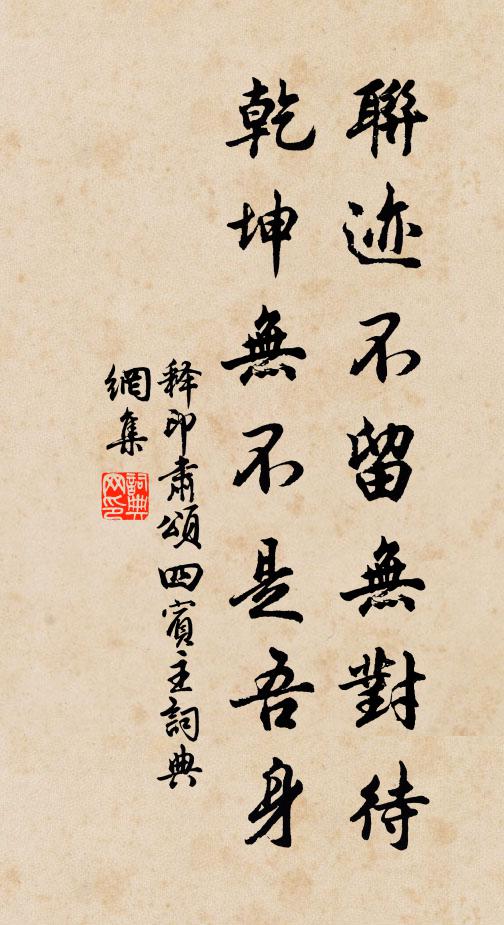 聯迹不留無對待
乾坤無不是吾身
释印肅頌四賓主詞典
網集
詞典
网印